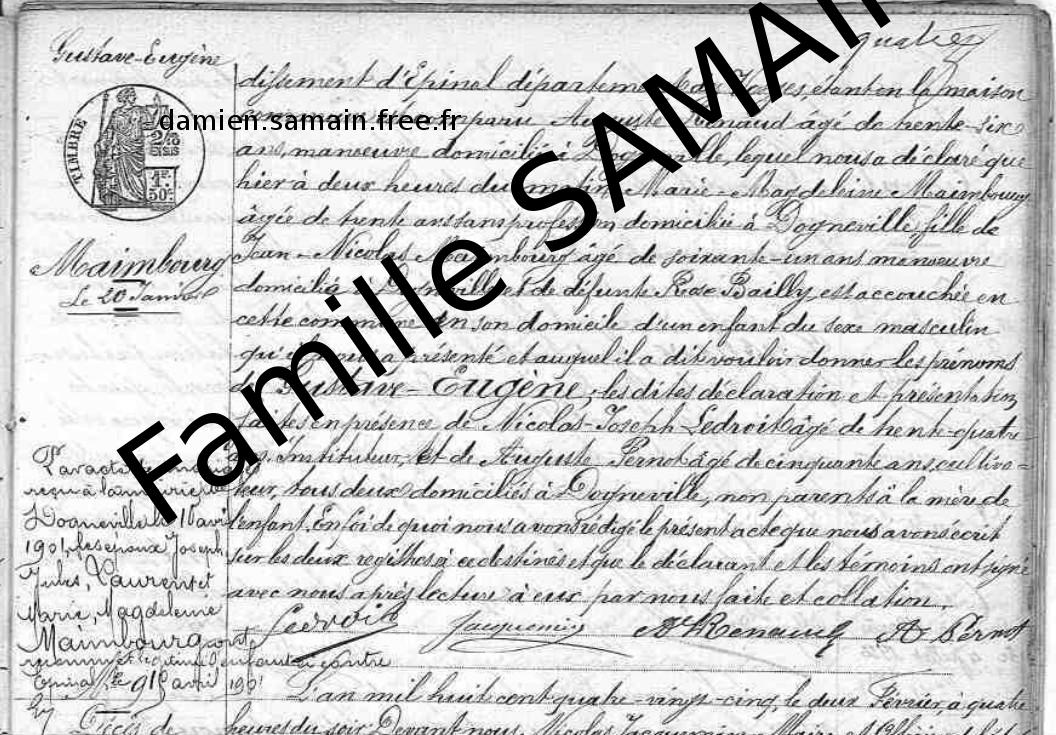 quatre
Gustave-Eugène
TIMBRE
2/10
EN SUS
1F.
50c
Maimbourg
Le 20 Janvier
dissement d'Epinal département des Vosges, étant en la maison
commune a comparu Auguste Renaud âgé de trente-six
ans, manœuvre domicilié à Dogneville, lequel nous a déclaré que
hier à deux heures du matin Marie-Magdeleine Maimbourg
âgée de trente ans sans profession domiciliée à Dogneville, fille de
Jean-Nicolas Maimbourg âgé de soixante-un ans manœuvre
domicilié à Dogneville et de défunte Rose Bailly, est accouchée en
cette commune en son domicile d'un enfant du sexe masculin
qu'il nous a présenté et auquel il a dit vouloir donner les prénoms
de Gustave-Eugène, les dites déclaration et présentation
faites en présence de Nicolas-Joseph Ledroit âgé de trente-quatre
ans, Instituteur, et de Auguste Pernot âgé de cinquante ans, cultiva=
teur, tous deux domiciliés à Dogneville, non parents à la mère de
l'enfant. En foi de quoi nous avons rédigé le présent acte que nous avons écrit
sur les deux registres à ce destinés et que le déclarant et les témoins ont signé
avec nous après lecture à eux par nous faite et collation.
Ledroit Jacquemin Ate Renaud A Pernot
Par acte de mariage
reçu à la mairie de
Dogneville le 1 avril
1901, les époux Joseph
Jules, Laurent et
Marie, Magdeleine
Maimbourg ont
reconnu et légitimé l'enfant ci contre
Epinal, le 9 avril 1901
L'an mil huit cent quatre-vingt-cinq, le deux Février, à quatre
Décès de
heures du soir Devant nous, Nicolas Jacquemin, Maire
damien.samain.free.fr
Famille SAMAIN